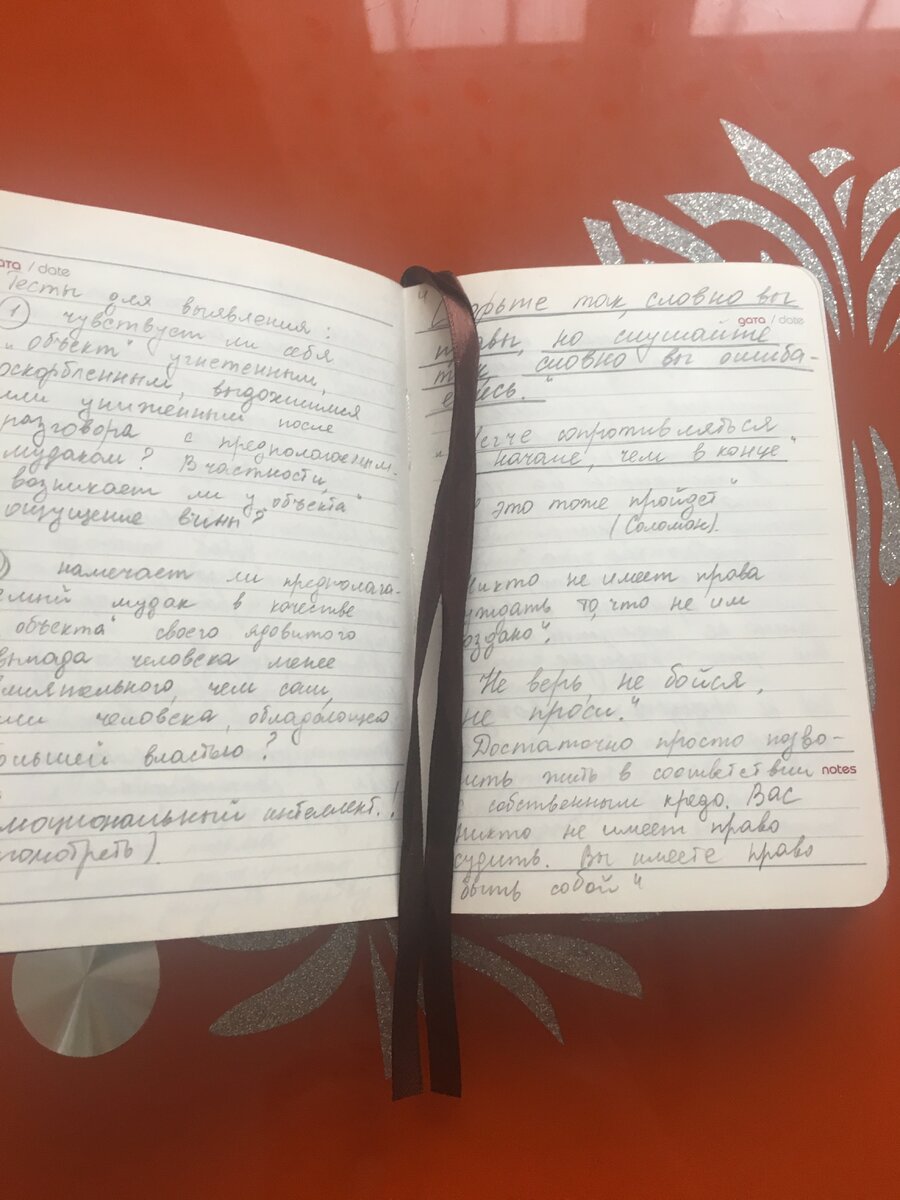 дата / date
Тесты для выявления:
1) чувствует ли себя
„объект" угнетенным,
оскорбленным, выдохшимся
или униженным после
разговора с предполагаемым
мудаком? В частности,
возникает ли у „объекта"
ощущение вины?
намечает ли предполага-
емый мудак в качестве
объекта" своего ядовитого
выпада человека менее
влиятельного, чем сам,
или человека, обладающего
большей властью?
эмоциональный интеллект.!
посмотреть)
"Спорьте так, словно вы
дата / date
правы, но слушайте
так словно вы ошиба-
етесь."
„Легче сопротивляться
в начале, чем в конце"
„это тоже пройдет"
(Соломон).
Никто не имеет права
осуждать то, что не им
создано".
"Не верь, не бойся,
не проси."
Достаточно просто позво-
лить жить в соответствии
notes
с собственным кредо. Вас
никто не имеет право
судить. Вы имеете право
быть собой"